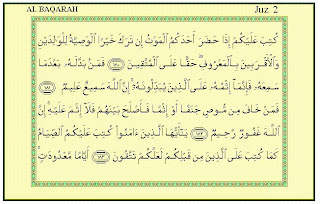 AL BAQARAH Juz 2
كُتِبَ عَلَيْكُمْ إِذَا حَضَرَ أَحَدَكُمُ ٱلْمَوْتُ إِن تَرَكَ خَيْرًا ٱلْوَصِيَّةُ لِلْوَٰلِدَيْنِ
وَٱلْأَقْرَبِينَ بِٱلْمَعْرُوفِ ۖ حَقًّا عَلَى ٱلْمُتَّقِينَ ١٨٠ فَمَنۢ بَدَّلَهُۥ بَعْدَمَا
سَمِعَهُۥ فَإِنَّمَآ إِثْمُهُۥ عَلَى ٱلَّذِينَ يُبَدِّلُونَهُۥٓ ۚ إِنَّ ٱللَّهَ سَمِيعٌ عَلِيمٌ ١٨١
فَمَنْ خَافَ مِن مُّوصٍ جَنَفًا أَوْ إِثْمًا فَأَصْلَحَ بَيْنَهُمْ فَلَآ إِثْمَ عَلَيْهِ ۚ إِنَّ
ٱللَّهَ غَفُورٌ رَّحِيمٌ ١٨٢ يَٰٓأَيُّهَا ٱلَّذِينَ ءَامَنُوا۟ كُتِبَ عَلَيْكُمُ ٱلصِّيَامُ
كَمَا كُتِبَ عَلَى ٱلَّذِينَ مِن قَبْلِكُمْ لَعَلَّكُمْ تَتَّقُونَ ١٨٣ أَيَّامًا مَّعْدُودَٰتٍ ۚ